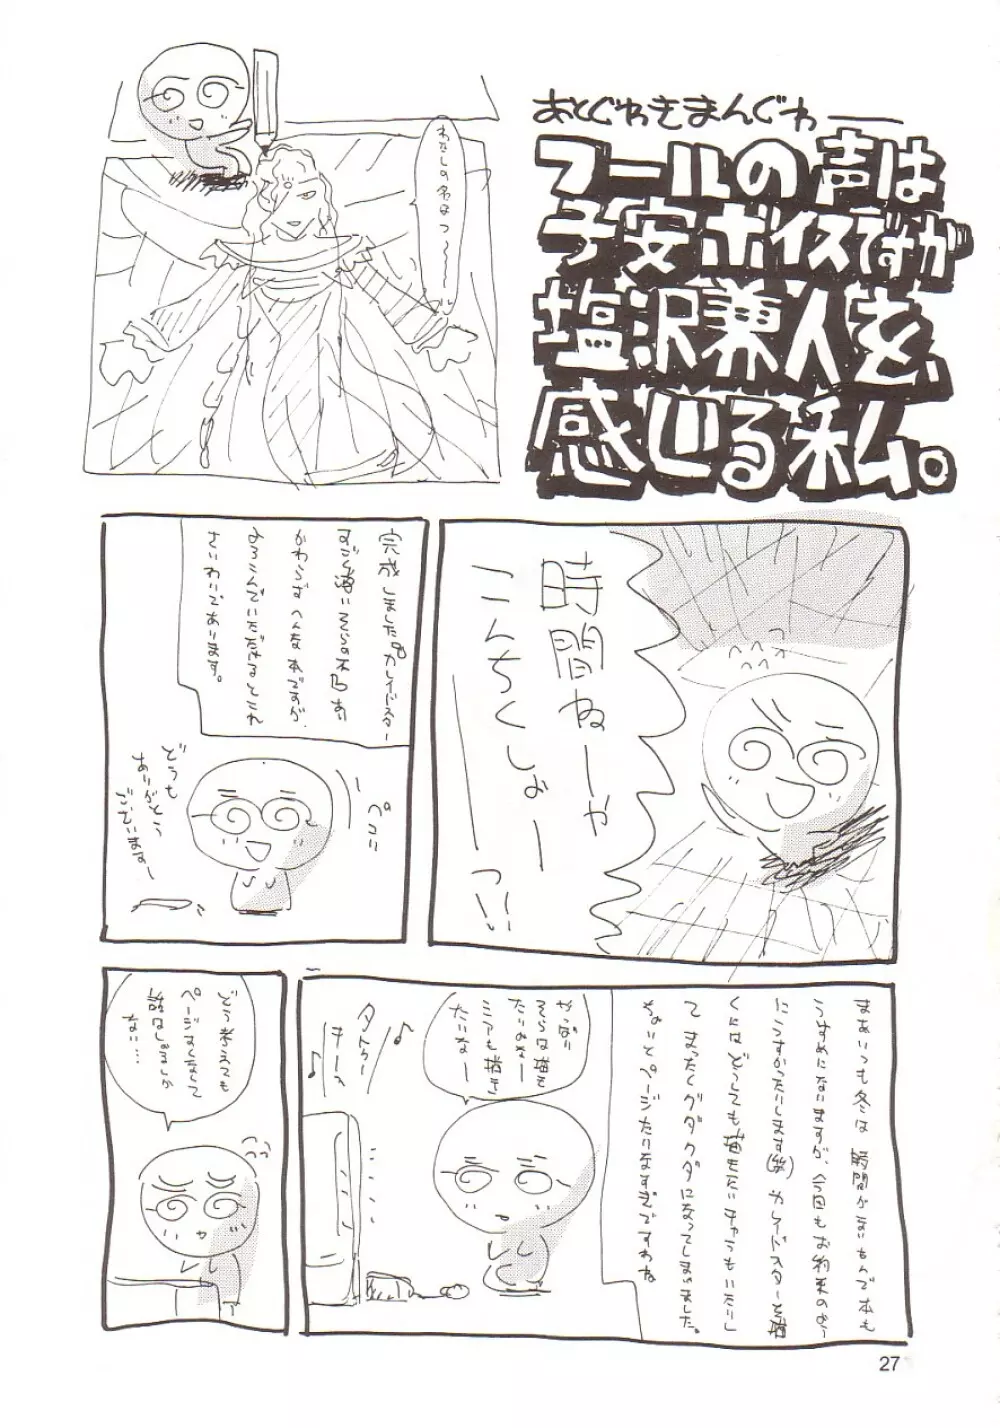 あとぐわきまんぐわ――
フールの声は
子安ボイスですが
塩沢兼人を、
感じる私。
わたしの名はフ～～～ル
時間ねーや
こんちくしょーっ!!
完成しました。カレイドスター
すごく薄い そらの本 あい
かわらず へんな本ですが、
よろこんでいただけるとこれ
さいわいであります。
ペコリ
どうも
ありがとう
ございますー
まあいつも冬は 時間がないもんで本も
うすめになりますが、今回もお約束のよう
にうすかったりします(笑) カレイドスターを描
くにはどうしても描きたいキャラもいたりし
て まったくグダグダになってしまいました。
ちょいとページたりなすぎですわね
やっぱり
そらは描き
たいよなー
ミアも描き
たいなー
♪
♪
どう考えても
ページすくなくて
話はしょるしか
ない…
27